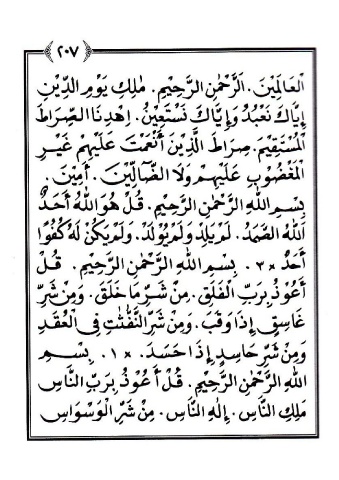 ٢٠٧
الْعَالَمِيْنَ. اَلرَّحْمٰنِ الرَّحِيْمِ. مٰلِكِ يَوْمِ الدِّيْنِ
إِيَّاكَ نَعْبُدُ وَإِيَّاكَ نَسْتَعِيْنُ. اِهْدِنَا الصِّرَاطَ
الْمُسْتَقِيْمَ. صِرَاطَ الَّذِيْنَ أَنْعَمْتَ عَلَيْهِمْ غَيْرِ
الْمَغْضُوْبِ عَلَيْهِمْ وَلَا الضَّالِّيْنَ. أٰمِيْنَ.
بِسْمِ اللهِ الرَّحْمٰنِ الرَّحِيْمِ. قُلْ هُوَ اللهُ أَحَدٌ
اَللهُ الصَّمَدُ. لَمْ يَلِدْ وَلَمْ يُوْلَدْ. وَلَمْ يَكُنْ لَهُ كُفُوًا
أَحَدٌ ×٣. بِسْمِ اللهِ الرَّحْمٰنِ الرَّحِيْمِ. قُلْ
أَعُوْذُ بِرَبِّ الْفَلَقِ. مِنْ شَرِّ مَا خَلَقَ. وَمِنْ شَرِّ
غَاسِقٍ إِذَا وَقَبَ. وَمِنْ شَرِّ النَّفّٰثٰتِ فِى الْعُقَدِ
وَمِنْ شَرِّ حَاسِدٍ إِذَا حَسَدَ. ×١. بِسْمِ
اللهِ الرَّحْمٰنِ الرَّحِيْمِ. قُلْ أَعُوْذُ بِرَبِّ النَّاسِ
مَلِكِ النَّاسِ. إِلٰهِ النَّاسِ. مِنْ شَرِّ الْوَسْوَاسِ